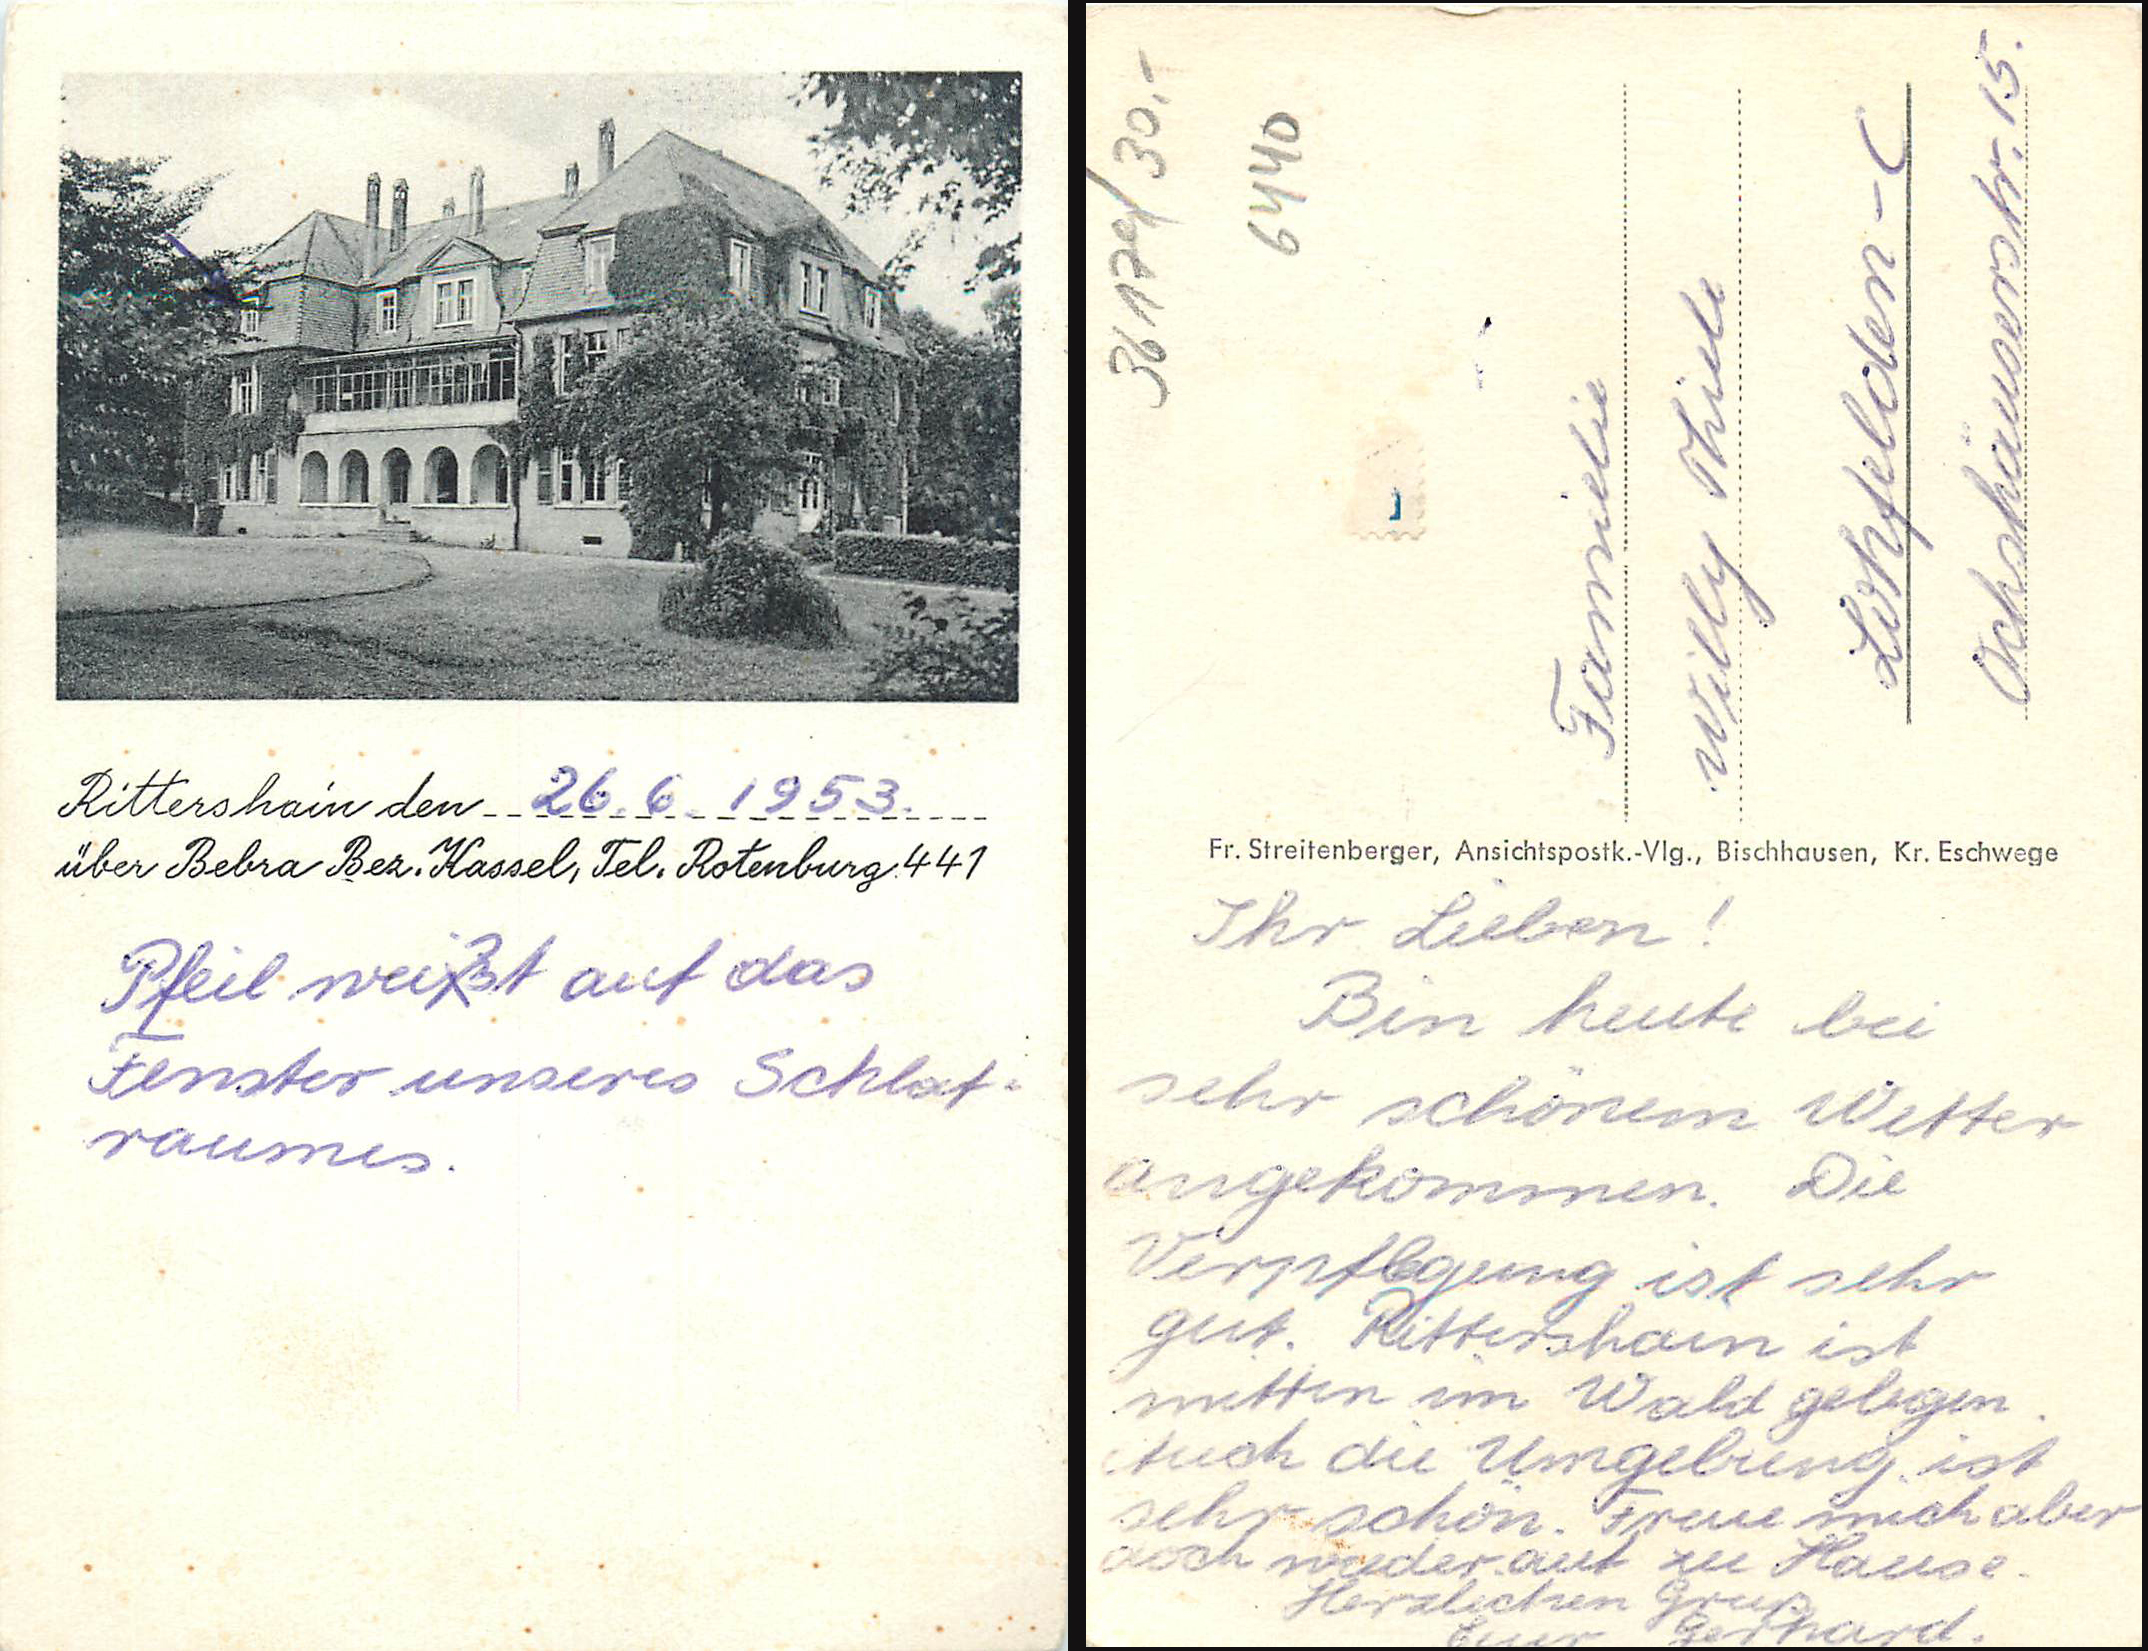 Rittershain den 26.6.1953.
über Bebra Bez. Kassel, Tel. Rotenburg 441
Pfeil weißt auf das
Fenster unseres Schlaf-
raumes.
36179/30.-
6440
Familie
Willy Thiele
Lohfelden-C
Ochshäuserstr. 15.
Fr. Streitenberger, Ansichtspostk.-Vlg., Bischhausen, Kr. Eschwege
Ihr Lieben!
Bin heute bei
sehr schönem Wetter
angekommen. Die
Verpflegung ist sehr
gut. Rittershain ist
mitten im Wald gelegen.
Auch die Umgebung ist
sehr schön. Freue mich aber
doch wieder auf zu Hause.
Herzlichen Gruß
Euer Gerhard.